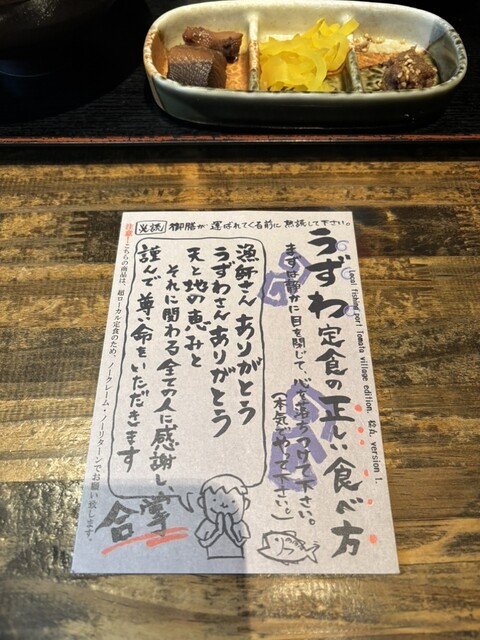 必読 御膳が運ばれてくる前に熟読して下さい。
うずわ定食の正しい食べ方
Local fishing port Tomato village edition. version 1.
まずは静かに目を閉じて、心を落ちつけて下さい。
(本気でやって下さい。)
漁師さんありがとう
うずわさんありがとう
天と地の恵みと
それに関わる全ての人に感謝し、
謹んで尊い命をいただきます
合掌
注意：こちらの商品は、超ローカル定食のため、ノークレーム・ノーリターンでお願い致します。